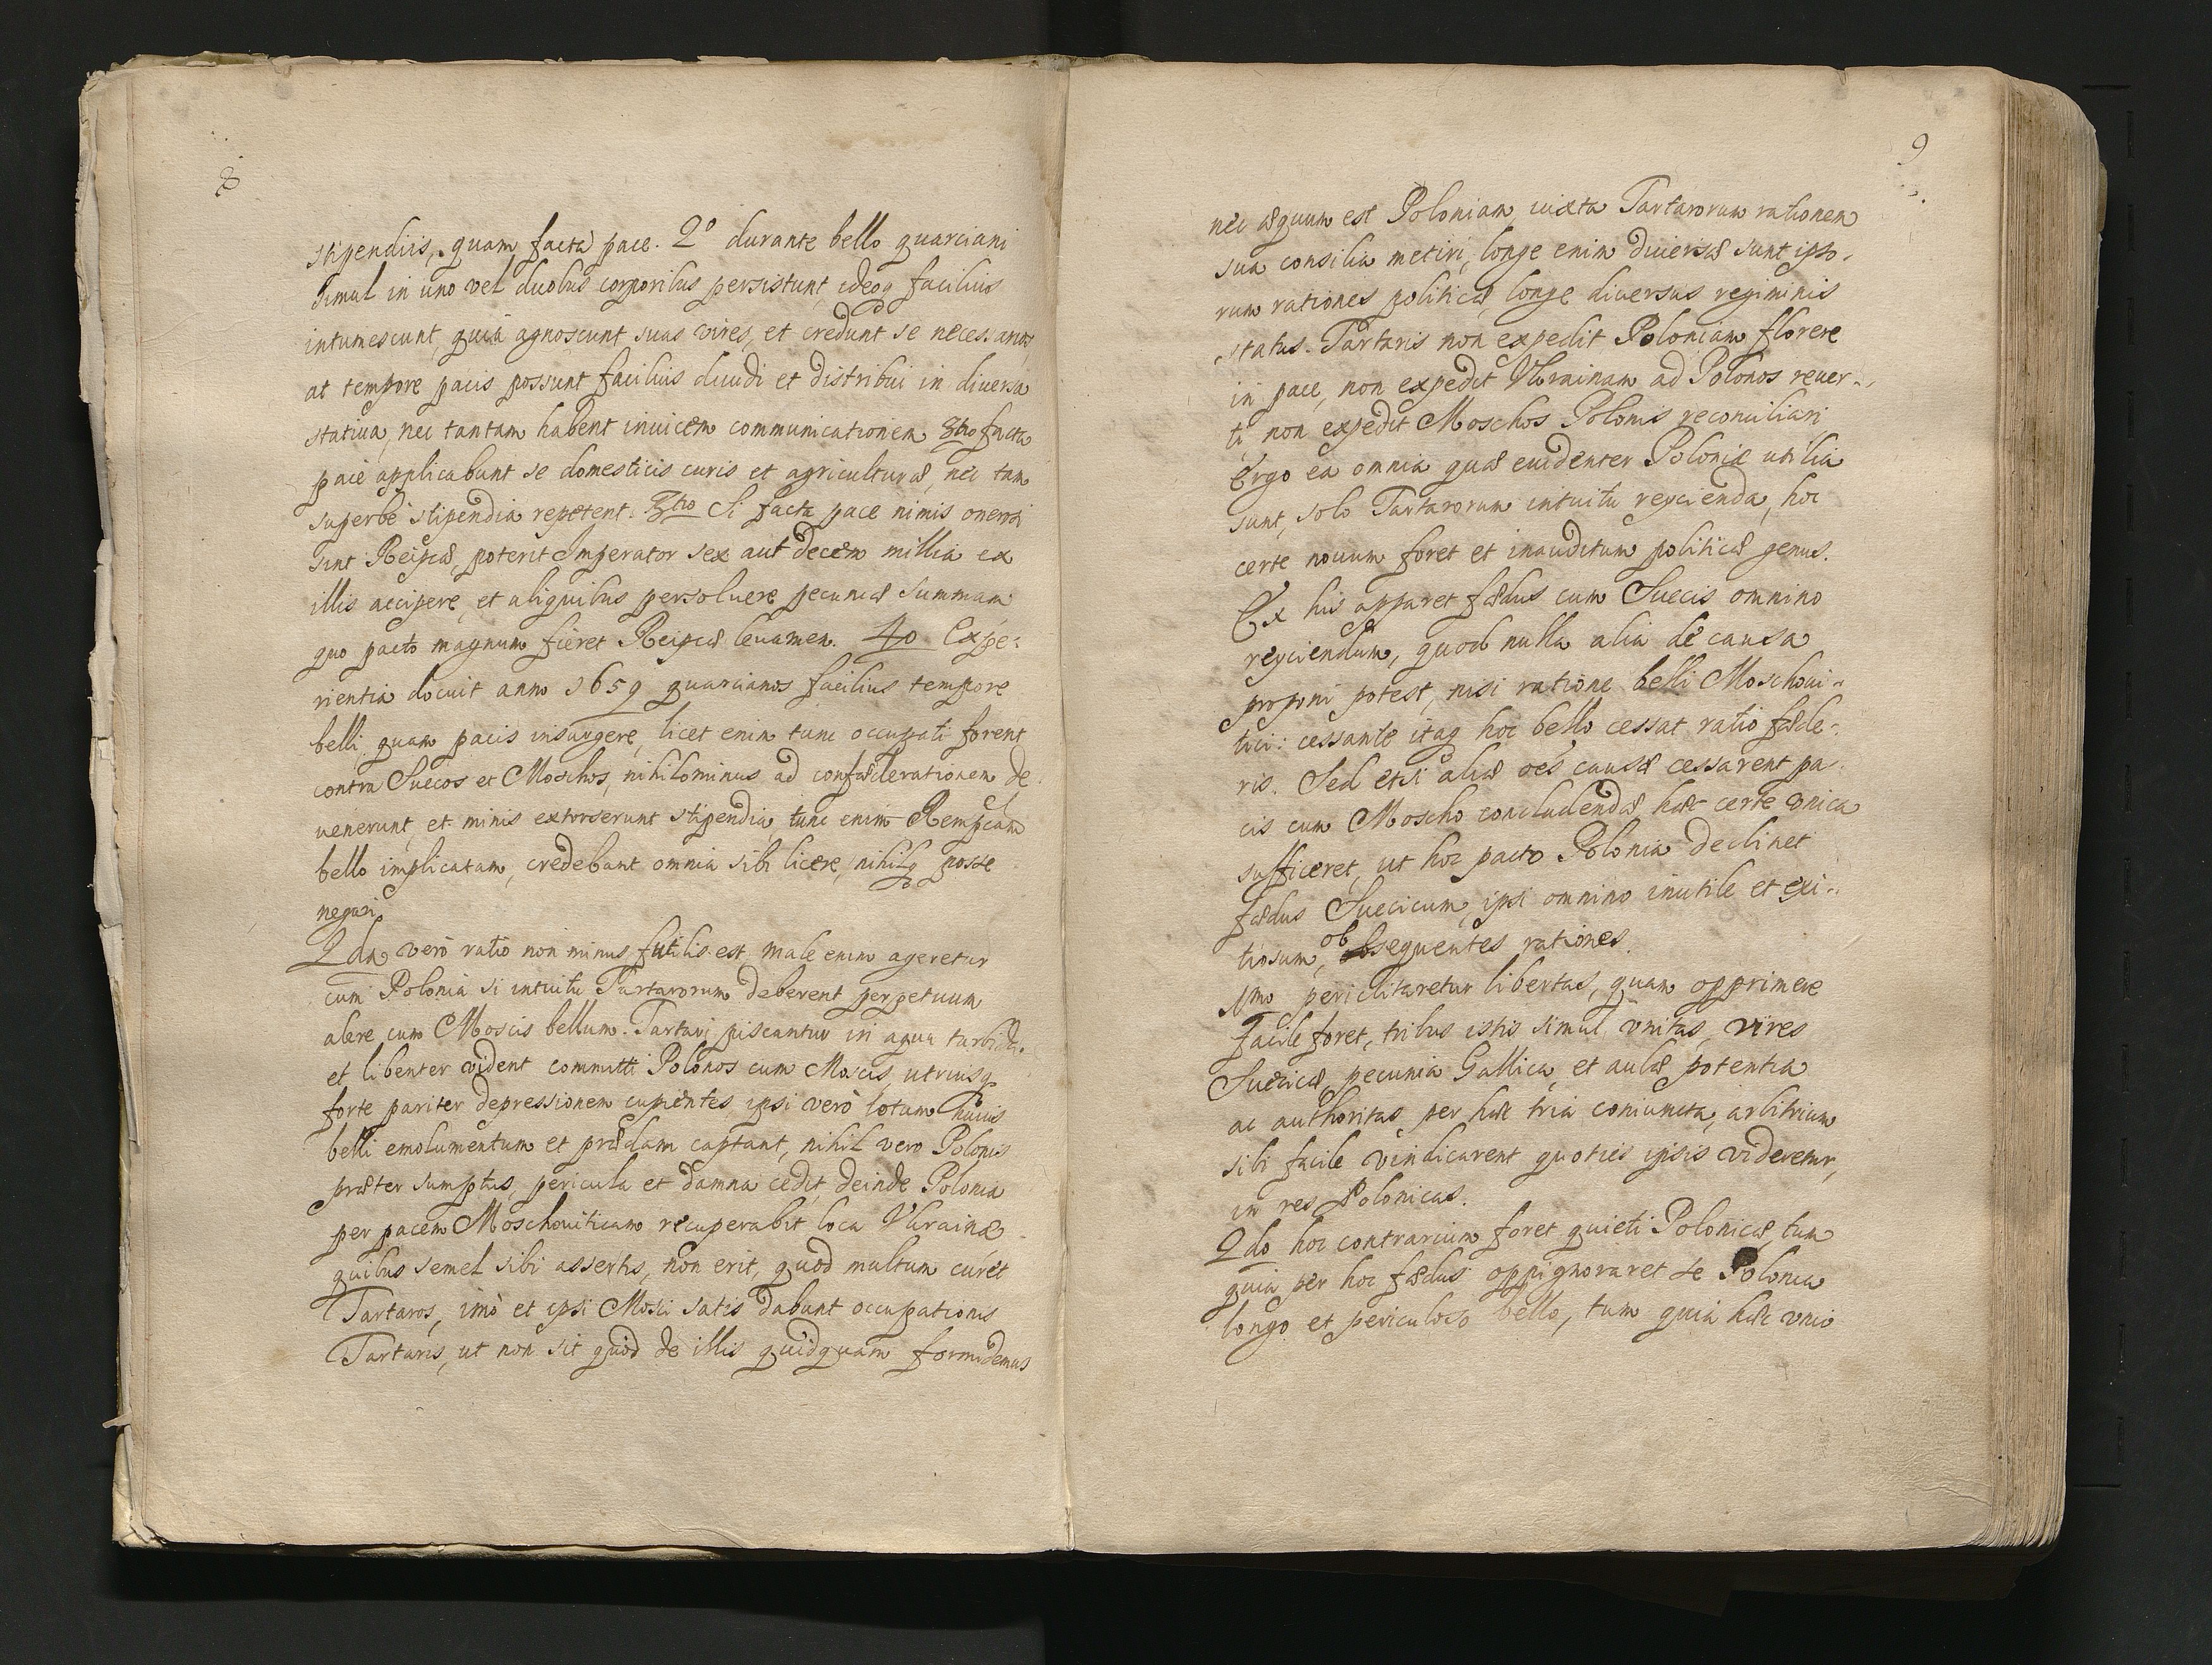 8
stipendiis, quam facta pace. 2º durante bello quarciani
simul in uno vel duobus corporibus persistunt, ideoq facilius
intumescunt, quia agnoscunt suas vires, et credunt se necessarios,
at tempore pacis possunt facilius diuidi et distribui in diuersa
statiua, nec tantam habent inuicem communicationem 3tio facta
pace applicabunt se domesticis curis et agriculturæ, nec tam
superbe stipendia repetent. 3tio Si facta pace nimis onerosi
sint Reipcæ, poterit Imperator sex aut decem millia ex
illis accipere, et aliquibus persoluere pecuniæ summam
quo pacto magnum fieret Reipcæ leuamen. 4o Expe:
rientia docuit anno 1659 quarcianos facilius tempore
belli quam pacis insurgere, licet enim tunc occupati forent
contra Suecos et Moschos, nihilominus ad confæderationem de
uenerunt, et minis extorserunt stipendia, tunc enim Rempcam
bello implicatam, credebant omnia sibi licere, nihilq posse
negari.
2da verò ratio non minus futilis est, male enim ageretur
cum Polonia si intuitu Tartarorum deberent perpetuum
alere cum Moscis bellum. Tartari piscantur in aqua turbida.
et libenter vident committi Polonos cum Moscis, utriusq
forte pariter depressionem cupientes, ipsi verò totum huius
belli emolumentum et prædam captant, nihil vero Polonis
præter sumptus, pericula et damna cedit, deinde Polonia
per pacem Moschouiticam recuperabit loca Ukrainæ
quibus semel sibi assertis, non erit, quod multum curet
Tartaros, imò et ipsi Mosci satis dabunt occupationis
Tartaris, ut non sit quod de illis quidquam formidemus
9
nec æquum est Poloniam iuxta Tartarorum rationem
sua consilia metiri, longe enim diuersæ sunt ipso-
rum rationes politicæ, longe diuersus regiminis
status. Tartaris non expedit Poloniam florere
in pace, non expedit Ukrainam ad Polonos reuer-
ti non expedit Moschos Polonis reconciliari
Ergo ea omnia quæ euidenter Poloniæ utilia
sunt, solo Tartarorum intuitu reycienda, hoc
certe nouum foret et inauditum politicæ genus.
Ex his apparet fædus cum Suecis omnino
reyciendum, quod nulla alia de causa
proponi potest, nisi ratione belli Moschoui-
tici: cessante itaq hoc bello cessat ratio fæde-
ris. Sed etsi aliæ oes causæ cessarent pa-
cis cum Moscho concludendæ hæc certe vnica
sufficeret, ut hoc pacto Polonia declinet
fædus Suecicum, ipsi omnino inutile et exi-
tiosum, ob sequentes rationes.
1mo periclitaretur libertas, quam opprimere
facile foret, tribus istis simul vnitas, vires
Suecicæ, pecunia Gallica, et aulæ potentia
ac authoritas per hæc tria coniuncta, arbitrium
sibi facile vindicarent quoties ipsis videretur,
in res Polonicas.
2do hoc contrarium foret quieti Polonicæ, tum
quia per hoc fædus oppignoraret se Polonia
longo et periculoso bello, tum quia hæc vnio